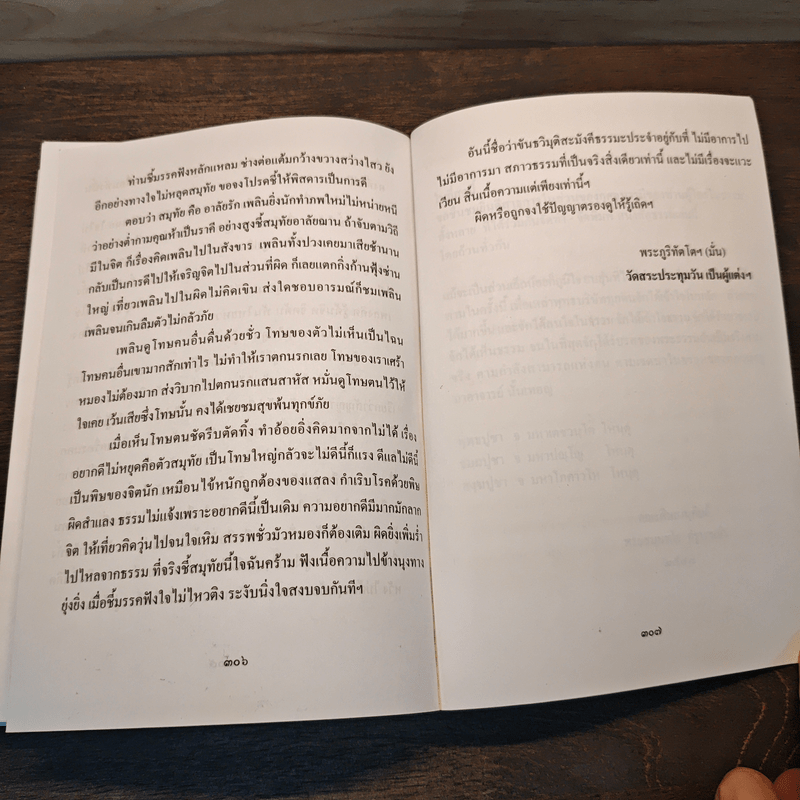 ท่านชี้มรรคฟังหลักแหลม ช่างต่อแต้มกว้างขวางสว่างไสว ยัง
อีกอย่างทางใจไม่หลุดสมุทัย ขอจงโปรดชี้ให้พิสดารเป็นการดี
ตอบว่า สมุทัย คือ อาลัยรัก เพลินยิ่งนักทำภพใหม่ไม่หน่ายหนี
ว่าอย่างต่ำกามคุณห้าเป็นราคี อย่างสูงชี้สมุทัยอาลัยฌาน ถ้าจับตามวิถี
มีในจิต ก็เรื่องคิดเพลินไปในสังขาร เพลินทั้งปวงเคยมาเสียช้านาน
กลับเป็นการดีไปให้เจริญจิตไปในส่วนที่ผิด ก็เลยแตกกิ่งก้านฟุ้งซ่าน
ใหญ่ เที่ยวเพลินไปในผิดไม่คิดเขิน สิ่งใดชอบอารมณ์ก็ชมเพลิน
เพลินจนเกินลืมตัวไม่กลัวภัย
เพลินดูโทษคนอื่นดื่นด้วยชั่ว โทษของตัวไม่เห็นเป็นไฉน
โทษคนอื่นเขามากสักเท่าไร ไม่ทำให้เราตกนรกเลย โทษของเราเศร้า
หมองไม่ต้องมาก ส่งวิบากไปตกนรกแสนสาหัส หมั่นดูโทษตนไว้ให้
ใจเคย เว้นเสียซึ่งโทษนั้น คงได้เชยชมสุขพ้นทุกข์ภัย
เมื่อเห็นโทษตนชัดรีบตัดทิ้ง ทำอ้อยอิ่งคิดมากจากไม่ได้ เรื่อง
อยากดีไม่หยุดคือตัวสมุทัย เป็นโทษใหญ่กลัวจะไม่ดีนี้ก็แรง ดีแลไม่ดีนี้
เป็นพิษของจิตนัก เหมือนไข้หนักถูกต้องของแสลง กำเริบโรคด้วยพิษ
ผิดสำแลง ธรรมไม่แจ้งเพราะอยากดีนี้เป็นเดิม ความอยากดีมีมากมักลาก
จิต ให้เที่ยวคิดวุ่นไปจนใจเหิม สรรพชั่วมัวหมองก็ต้องเติม ผิดยิ่งเพิ่มร่ำ
ไปไหลจากธรรม ที่จริงชี้สมุทัยนี้ใจฉันคร้าม ฟังเนื้อความไปข้างนุงทาง
ยุ่งยิ่ง เมื่อชี้มรรคฟังใจไม่ไหวติง ระงับนิ่งใจสงบจบกันทีฯ
๓๐๖
อันนี้ชื่อว่าขันธวิมุติสะมังคีธรรมะประจำอยู่กับที่ ไม่มีอาการไป
ไม่มีอาการมา สภาวธรรมที่เป็นจริงสิ่งเดียวเท่านี้ และไม่มีเรื่องจะแวะ
เวียน สิ้นเนื้อความแต่เพียงเท่านี้ฯ
ผิดหรือถูกจงใช้ปัญญาตรองดูให้รู้เถิดฯ
พระภูริทัตโตฯ (มั่น)
วัดสระประทุมวัน เป็นผู้แต่งฯ
๓๐๗